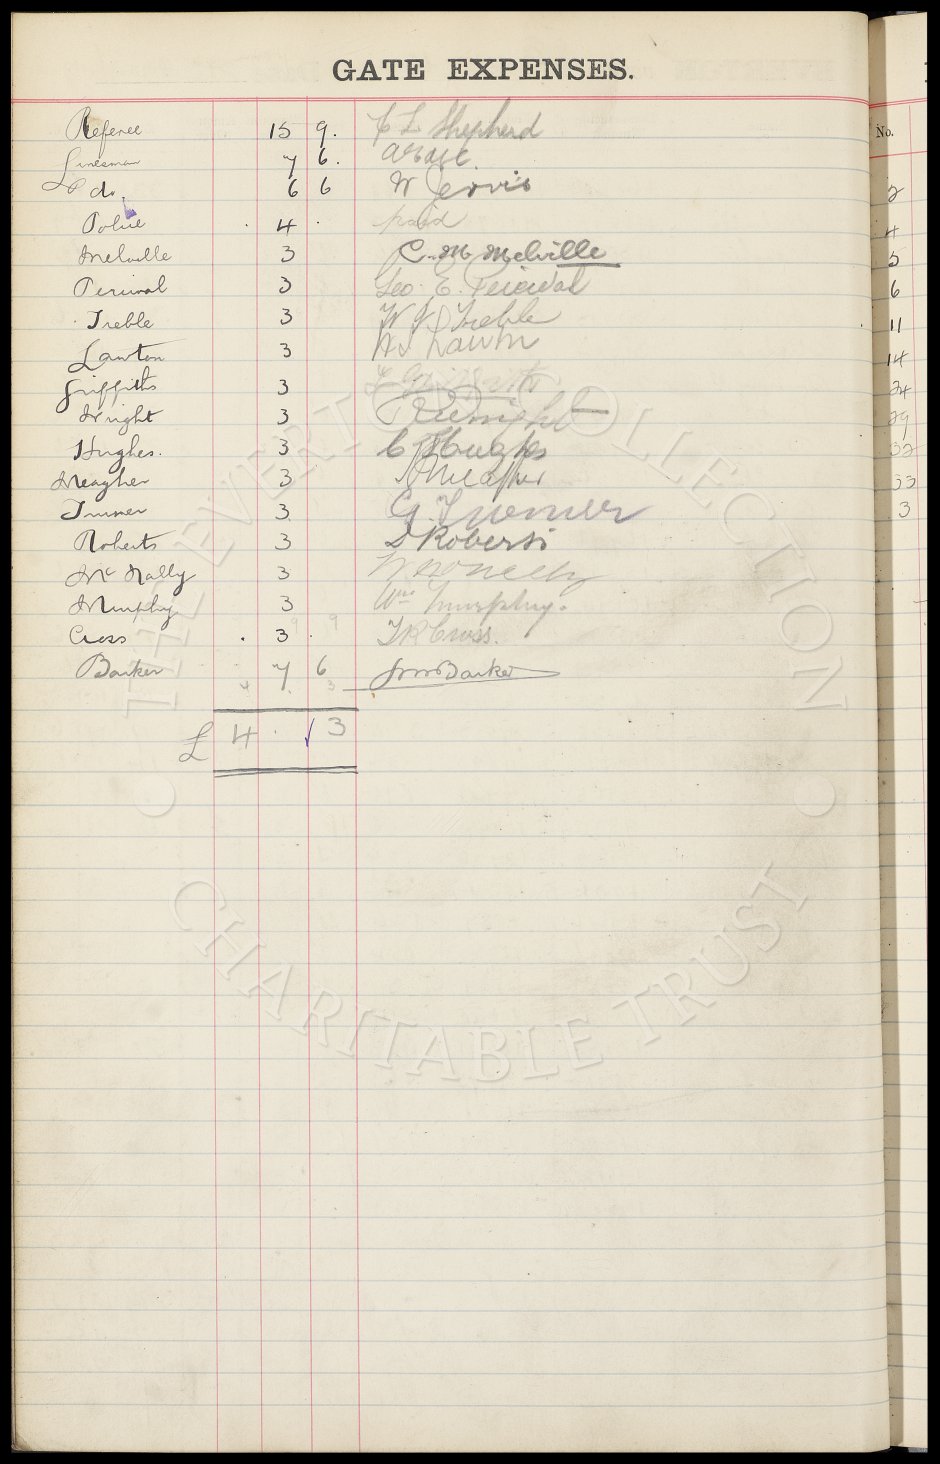 GATE EXPENSES.
Referee 15 9. Shepherd
Linesman 7 6.
do. 6 6 W Jervis
Police 4 . paid
Melville 3 C. M Melville
Percival 3 Geo. E. Percival
Treble 3 W J Treble
Lawton 3 Lawton
Griffiths 3
Wright 3
Hughes. 3 C Hughes
Meagher 3 Meagher
Turner 3 G. Turner
Roberts 3 D Roberts
Mc Nally 3
Murphy. 3 Wm Murphy.
Cross . 3 . T R Cross.
9 9
Barker 7 6 Barker
4 3
£ 4 . 3
No.
2
4
5
6
11
14
24
29
32
33
3
THE EVERTON COLLECTION
CHARITABLE TRUST